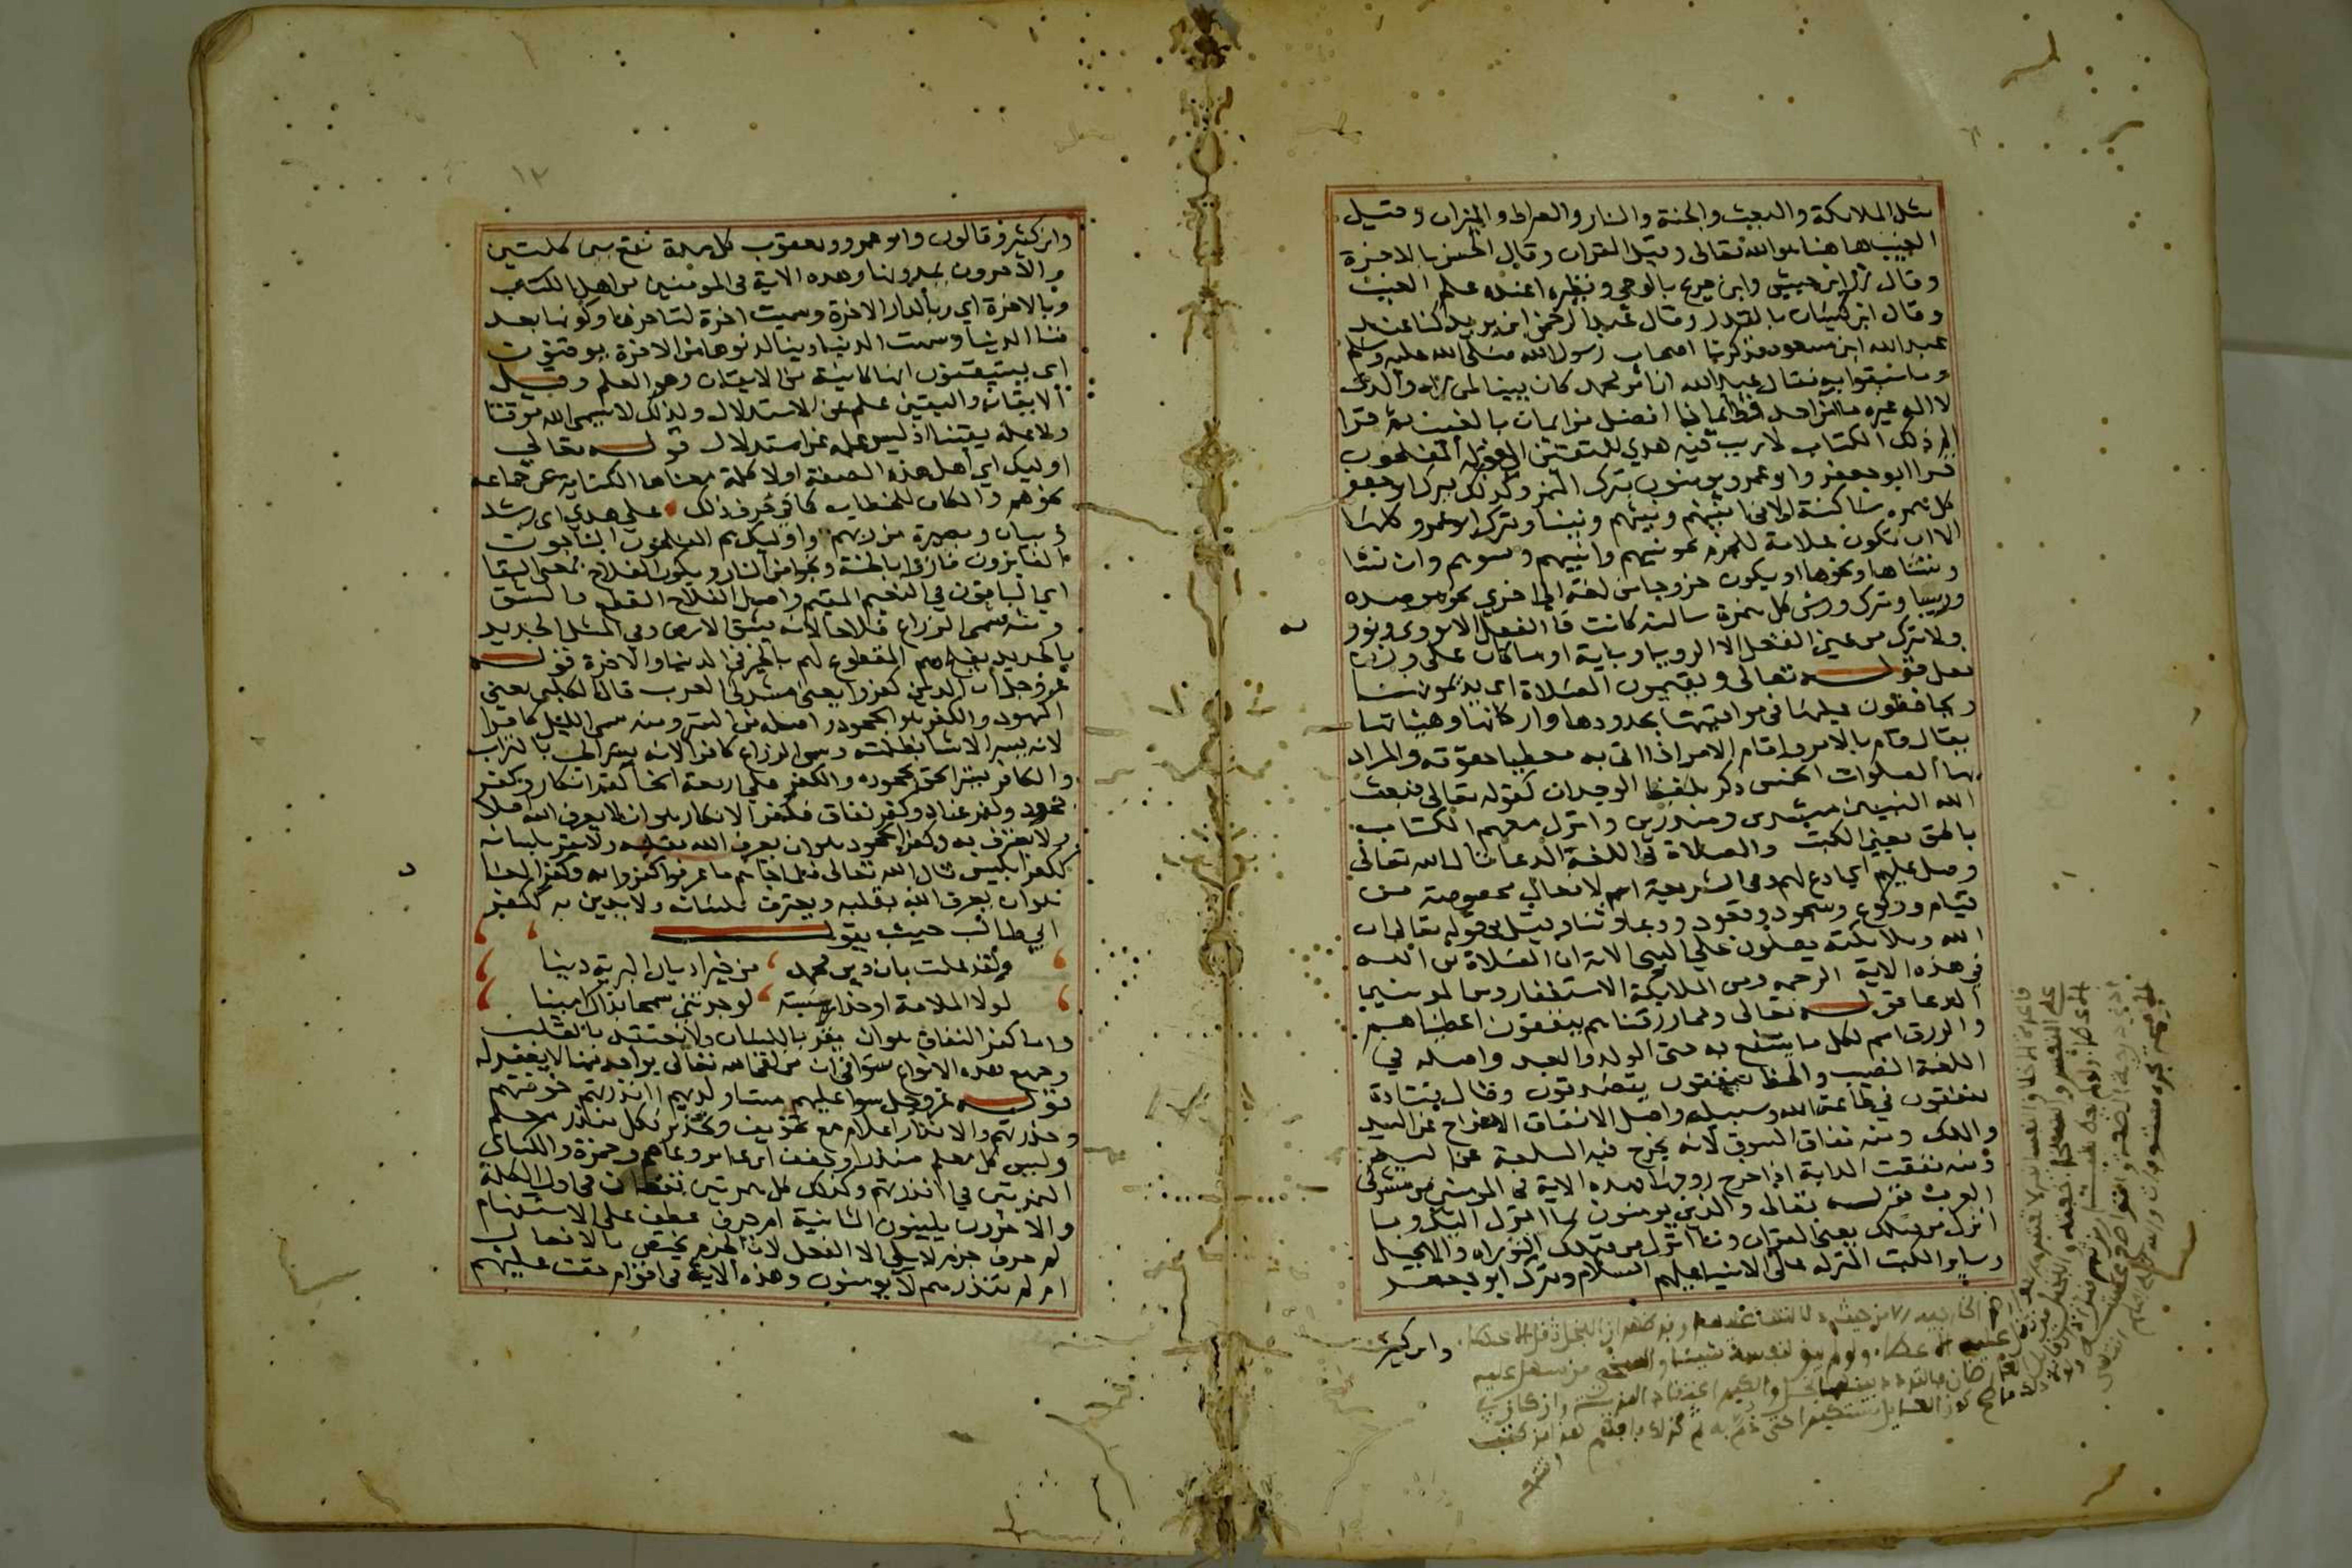 مثل الملائكة والبعث والجنة والنار والصراط والميزان وقيل
الغيب هاهنا هو الله تعالى وقيل القران وقال الحسن بالاخرة
وقال زر ابن حبيش وابن جريج بالوحي ونظيره اعنده علم الغيب
وقال ابن كيسان بالقدر وقال عبد الرحمن ابن يزيد كنا عند
عبد الله ابن مسعود فذكرنا اصحاب رسول الله صلى الله عليه وسلم
وما سبقوا به فقال عبد الله ان امر محمد كان بينا لمن راه والذي
لا اله غيره ما امن احد قط ايمانا افضل من ايمان بالغيب ثم قرا
الم ذلك الكتاب لا ريب فيه هدي للمتقين الى قوله المفلحون
قرا ابو جعفر وابو عمرو يومنون بترك الهمز وكذلك يترك ابو جعفر
كل همزه ساكنة الا في انبيهم ونبيهم ونبينا ويترك ابو عمرو كلها
الا ان تكون علامة للجزم نحو نبيهم وانبيهم وتسوهم وان نشا
وننساها ونحوها او يكون خروجا من لغة الى اخري نحو موصده
ورييا ويترك ورش كل همزة ساكنة كانت فا الفعل الا تووي وتوويه
ولا يترك من عين الفعل الا الرويا وبابه او ما كان على وزن
فعل قوله تعالى ويقيمون الصلاة اي يديمونها
ويحافظون عليها في مواقيتها بحدودها واركانها وهيئاتها
يقال قام بالامر واقام الامر اذا اتى به معطيا حقوقه والمراد
بها الصلوات الخمس ذكر بلفظ الوحدان كقوله تعالى فبعث
الله النبيين مبشرين ومنذرين وانزل معهم الكتاب
بالحق يعني الكتب والصلاة في اللغة الدعا قال الله تعالى
وصل عليهم اي ادع لهم وفي الشريعة اسم لافعال مخصوصة من
قيام وركوع وسجود وقعود ودعا وثنا وقيل في قوله تعالى ان
الله وملائكته يصلون علي النبي الاية ان الصلاة من الله
في هذه الاية الرحمه ومن الملايكة الاستغفار ومن المومنين
الدعا قوله تعالى ومما رزقناهم ينفقون اعطيناهم
والرزق اسم لكل ما ينتفع به حتى الولد والعبد واصله في
اللغة النصيب والحظ ينفقون يتصدقون وقال قتادة
ينفقون في طاعة الله وسبيله واصل الانفاق الاخراج عن اليد
والملك ومنه نفاق السوق لانه يخرج فيه السلعة عن اليد
ومنه نفقت الدابة اذا خرج روحها هذه الاية في المومنين من مشركي
العرب قوله تعالى والذين يومنون بما انزل اليك وما
انزل من قبلك يعني القران وما انزل من قبلك التوراه والانجيل
وساير الكتب المنزله على الانبيا عليهم السلام ويترك ابو جعفر
وابن كثير
١٢
وابن كثير وقالون وابو عمرو ويعقوب كل مدة تقع بين كلمتين
والاخرون يمدونها وهذه الاية في المومنين من اهل الكتاب
وبالاخرة اي بالدار الاخرة وسميت اخرة لتاخرها وكونها بعد
فنا الدنيا وسميت الدنيا دنيا لدنوها من الاخرة يوقنون
اي يستيقنون انها كائنة من الايقان وهو العلم وقيل
الايقان واليقين علم عن استدلال ولذلك لا يسمي الله موقنا
ولا علمه يقينا اذ ليس علمه عن استدلال قوله تعالي
اوليك اي اهل هذه الصفة اولا كلمة معناها الكناية عن جماعه
نحو هم والكاف للخطاب كما في حرف ذلك على هدي اي رشد
وبيان وبصيرة من ربهم واوليك هم المفلحون الناجون
الفايزون فازوا بالجنة ونجوا من النار ويكون الفلاح بمعنى البقا
اي الباقون في النعيم المقيم واصل الفلاح القطع والشق
ومنه سمي الزراع فلاحا لانه يشق الارض وفي المثل الحديد
بالحديد يفلح فهم المقطوع لهم بالخير في الدنيا والاخرة قوله
عز وجل ان الذين كفروا يعني مشركي العرب قال الكلبي يعني
اليهود والكفر هو الجحود واصله من الستر ومنه سمي الليل كافرا
لانه يستر الاشيا بظلمته وسمي الزراع كافرا لانه يستر الحب بالتراب
والكافر يستر الحق بجحوده والكفر علي اربعة انحا كفر انكار وكفر
جحود وكفر عناد وكفر نفاق فكفر الانكار هو ان لا يعرف الله اصلا
ولا يعترف به وكفر الجحود هو ان يعرف الله بقلبه ولا يقر بلسانه
ككفر ابليس قال الله تعالى فلما جاهم ما عرفوا كفروا به وكفر العناد
هو ان يعرف الله بقلبه ويعترف بلسانه ولا يدين به ككفر
ابي طالب حيث يقول
ولقد علمت بان دين محمد ، من خير اديان البرية دينا
لولا الملامة او حذار مسبة ، لوجدتني سمحا بذاك مبينا
واما كفر النفاق هو ان يقر باللسان ولا يعتقد بالقلب
وجميع هذه الانواع سوا في ان من لقي الله تعالى بواحد منها لا يغفر له
قوله عز وجل سوا عليهم متساو لديهم اانذرتهم خوفتهم
وحذرتهم والانذار اعلام مع تخويف وتحذير فكل منذر معلم
وليس كل معلم منذرا وحقق ابن عامر وعاصم وحمزة والكسائي
الهمزتين في اانذرتهم وكذلك كل همزتين تقعان في اول الكلمة
والاخرون يلينون الثانية ام حرف عطف على الاستفهام
لم حرف جزم لا يلي الا الفعل لان الجزم يختص بالافعال
ام لم تنذرهم لا يومنون وهذه الاية في اقوام حقت عليهم